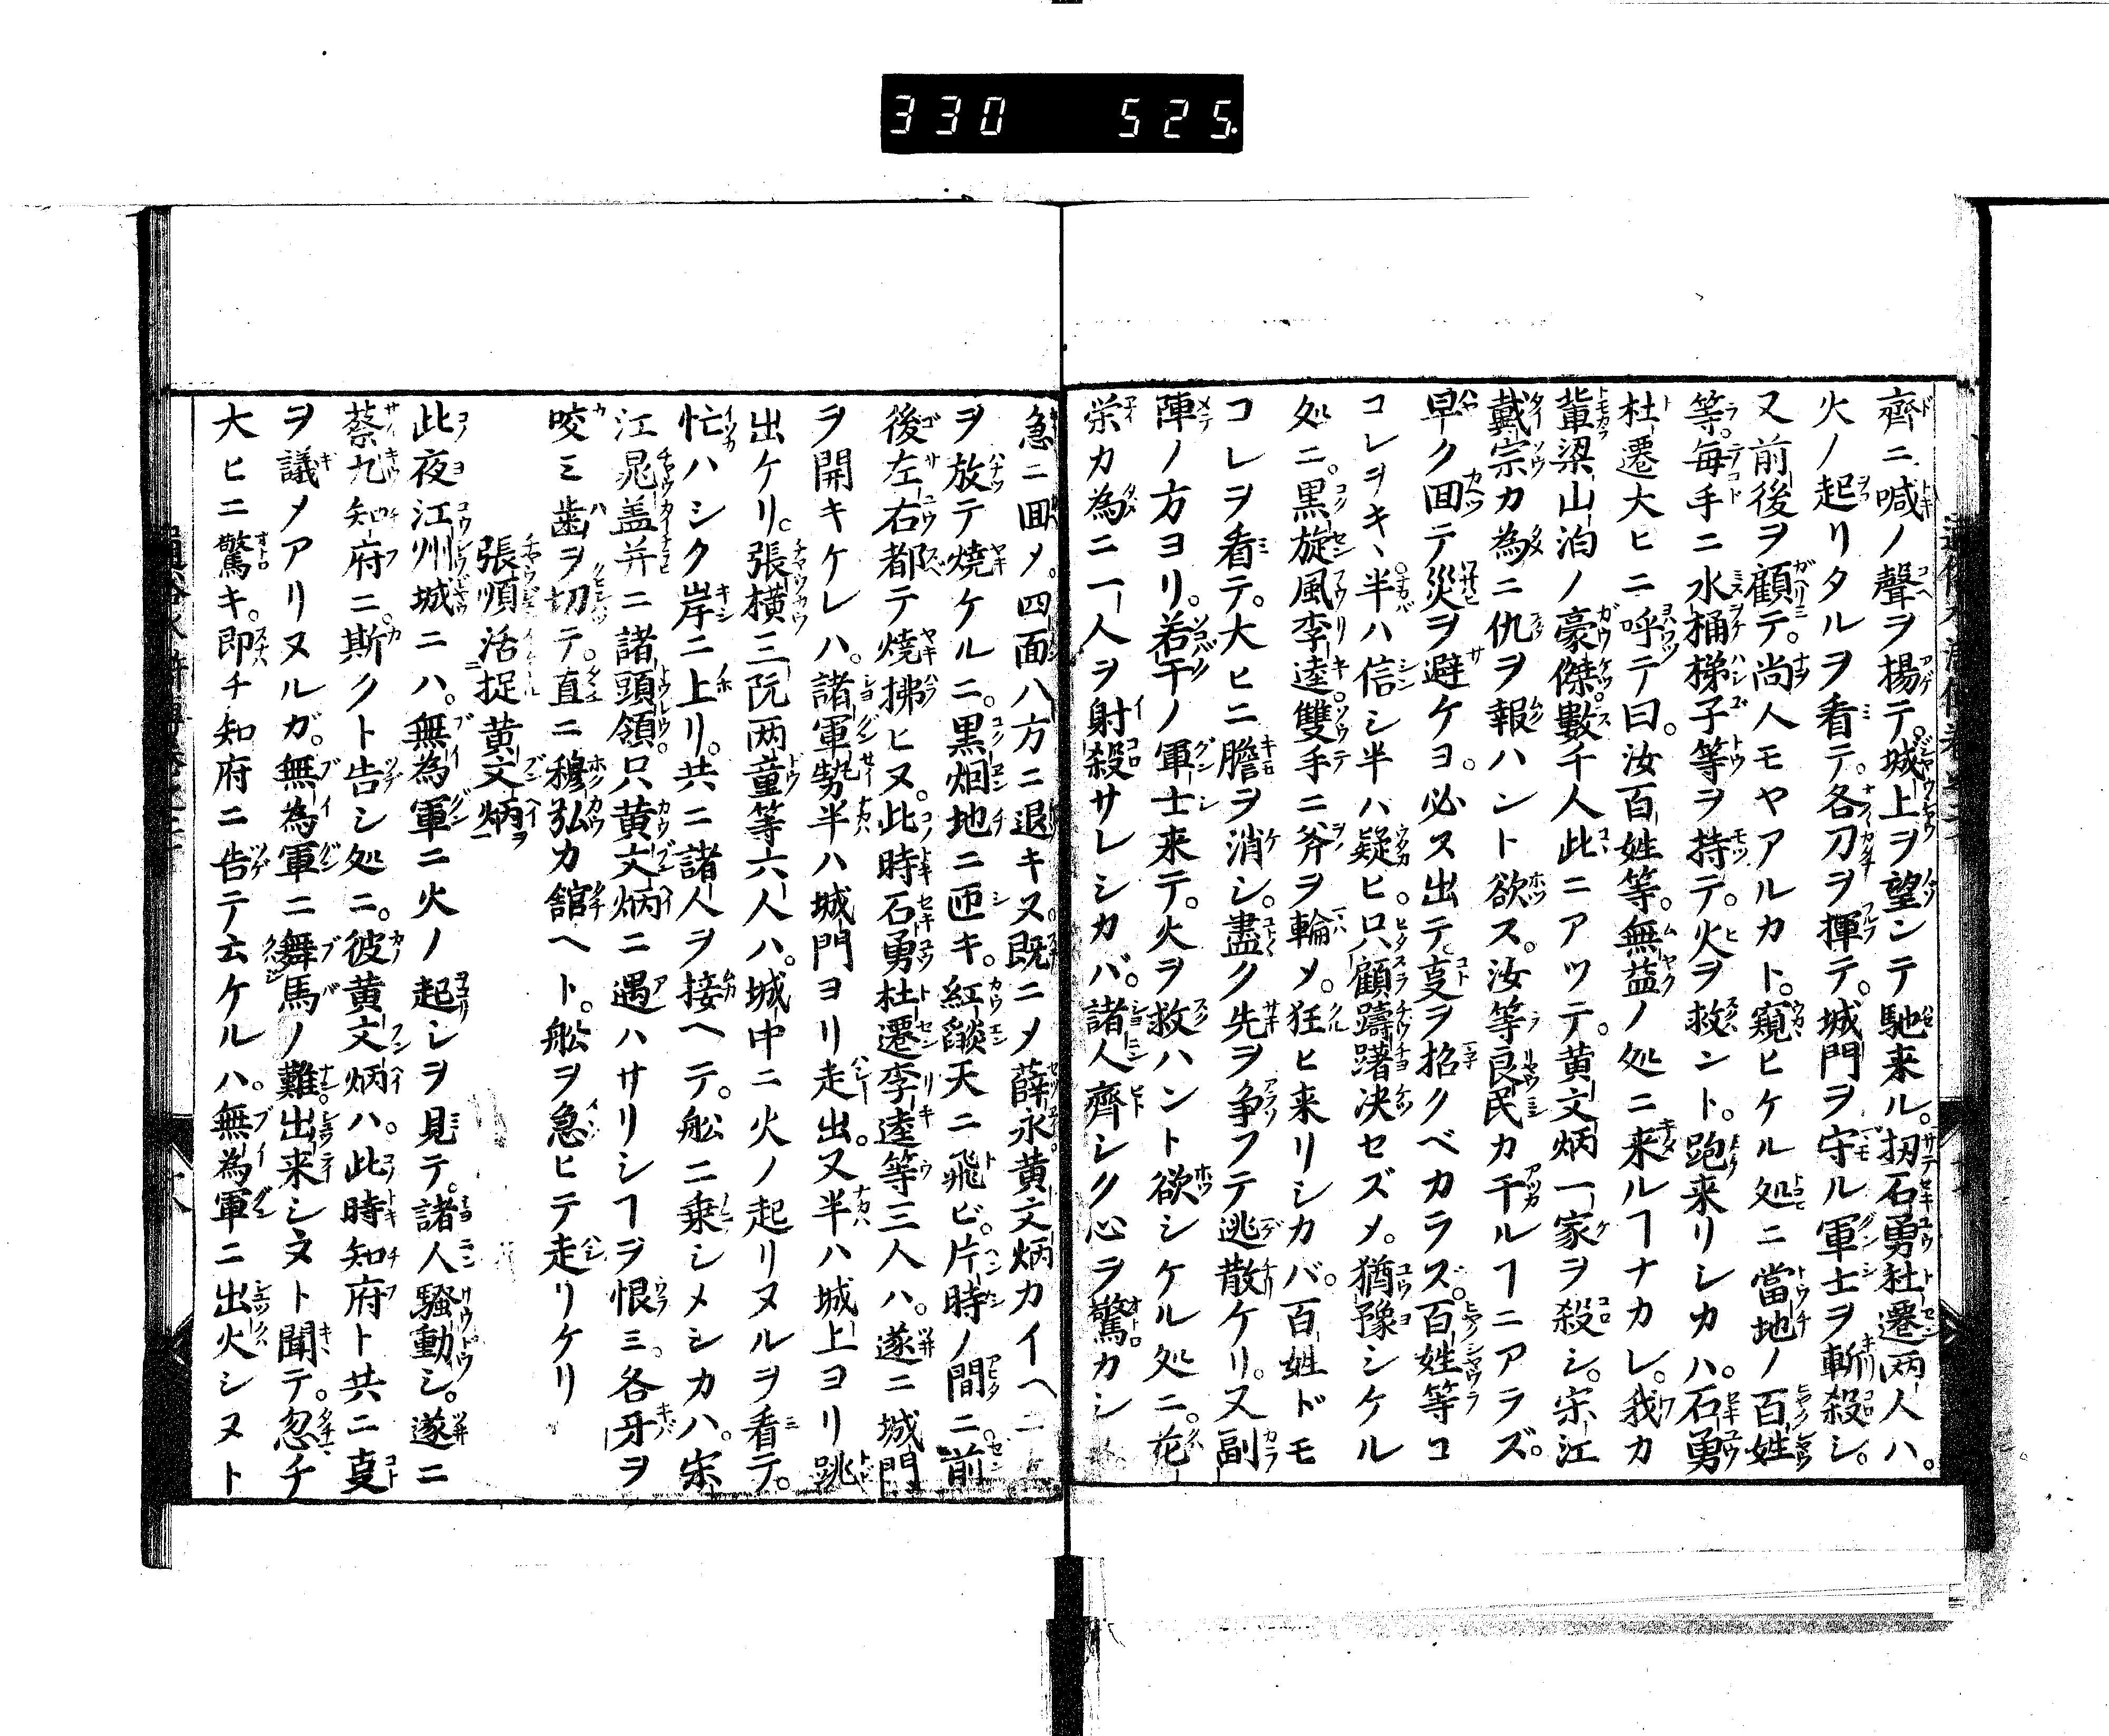 330 525.
齊ニ喊ノ聲ヲ揚テ。城上ヲ望ンテ馳来ル。扨石勇杜遷两人ハ。
火ノ起リタルヲ看テ。各刀ヲ揮テ。城門ヲ守ル軍士ヲ斬殺シ。
又前後ヲ顧テ。尚人モヤアルカト。窺ヒケル処ニ當地ノ百姓
等。毎手ニ水桶梯子等ヲ持テ。火ヲ救ント。跑来リシカハ。石勇
杜遷大ヒニ呼テ曰。汝百姓等。無益ノ処ニ来ルヿナカレ。我カ
軰梁山泊ノ豪傑數千人此ニアツテ。黄文炳一家ヲ殺シ。宋江
戴宗カ為ニ仇ヲ報ハント欲ス。汝等良民カ干ルヿニアラズ。
早ク囬テ災ヲ避ケヨ。必ス出テ㕝ヲ招クベカラズ。百姓等コ
コレヲキヽ半ハ信シ半ハ疑ヒ。只顧躊躇决セズメ。猶豫シケル
処ニ。黒旋風李逵。雙手ニ斧ヲ輪メ。狂ヒ来リシカバ。百姓ドモ
コレヲ看テ。大ヒニ膽ヲ消シ。盡ク先ヲ争フテ逃散ケリ。又副
陣ノ方ヨリ。若干ノ軍士来テ。火ヲ救ハント欲シケル処ニ。花
栄カ為ニ一人ヲ射殺サレシカバ。諸人齊シク心ヲ驚カシ
急ニ囬メ。四面八方ニ退キヌ。既ニメ薛永黄文炳カイヘニ
ヲ放テ燒ケルニ。黒烟地ニ匝キ。紅燄天ニ飛ビ。片時ノ間ニ前
後左右都テ燒拂ヒヌ。此時石勇杜遷李逵等三人ハ。遂ニ城門
ヲ開キケレハ。諸軍勢半ハ城門ヨリ走出。又半ハ城上ヨリ跳
出ケリ。張横三阮两童等六人ハ。城中ニ火ノ起リヌルヲ看テ。
忙ハシク岸ニ上リ。共ニ諸人ヲ接ヘテ。舩ニ乗シメシカハ。宋
江晁盖并ニ諸頭領。只黄文炳ニ遇ハサリシヿヲ恨ミ。各牙ヲ
咬ミ歯ヲ切テ。直ニ穆弘カ舘ヘト。舩ヲ急ヒテ走リケリ
張順活捉黄文炳
此夜江州城ニハ。無為軍ニ火ノ起シヲ見テ。諸人騷動シ。遂ニ
蔡九知府ニ。斯クト告シ処ニ。彼黄文炳ハ。此時知府ト共ニ㕝
ヲ議メアリヌルガ。無為軍ニ舞馬ノ難出来シヌト聞テ。忽チ
大ヒニ驚キ。即チ知府ニ告テ云ケルハ。無為軍ニ出火シヌト